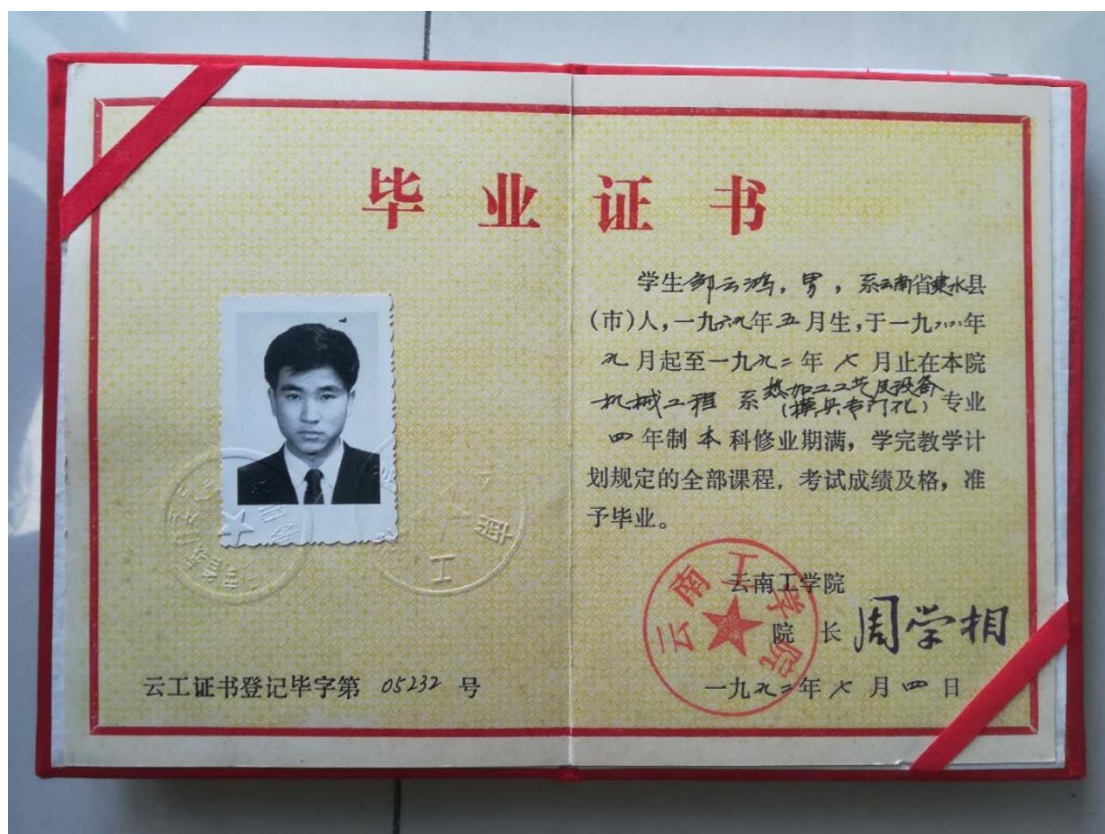 毕业证书
学生邹云鸿，男，系云南省建水县
(市)人，一九六九年五月生，于一九八八年
九月起至一九九二年七月止在本院
机械工程系热加工工艺及设备(模具专门化)专业
四年制本科修业期满，学完教学计
划规定的全部课程，考试成绩及格，准
予毕业。
云南工学院
院长周学相
一九九二年七月四日
云南工学院
云工证书登记毕字第 05232 号